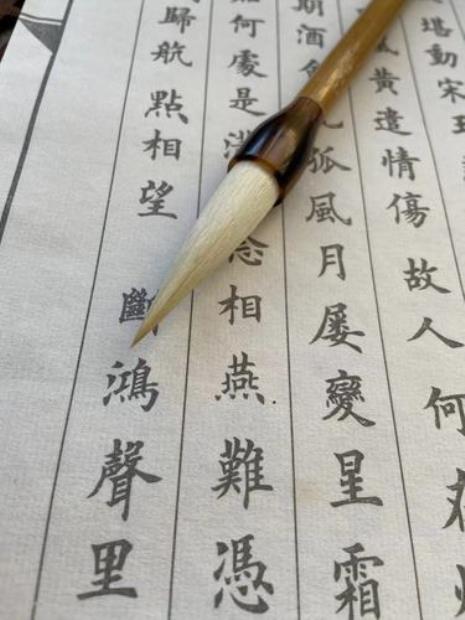 堪動宋
黃遣情傷 故人何
期酒孤風月屢變星霜
何處是念相燕難憑
歸航 點相望 斷鴻聲里